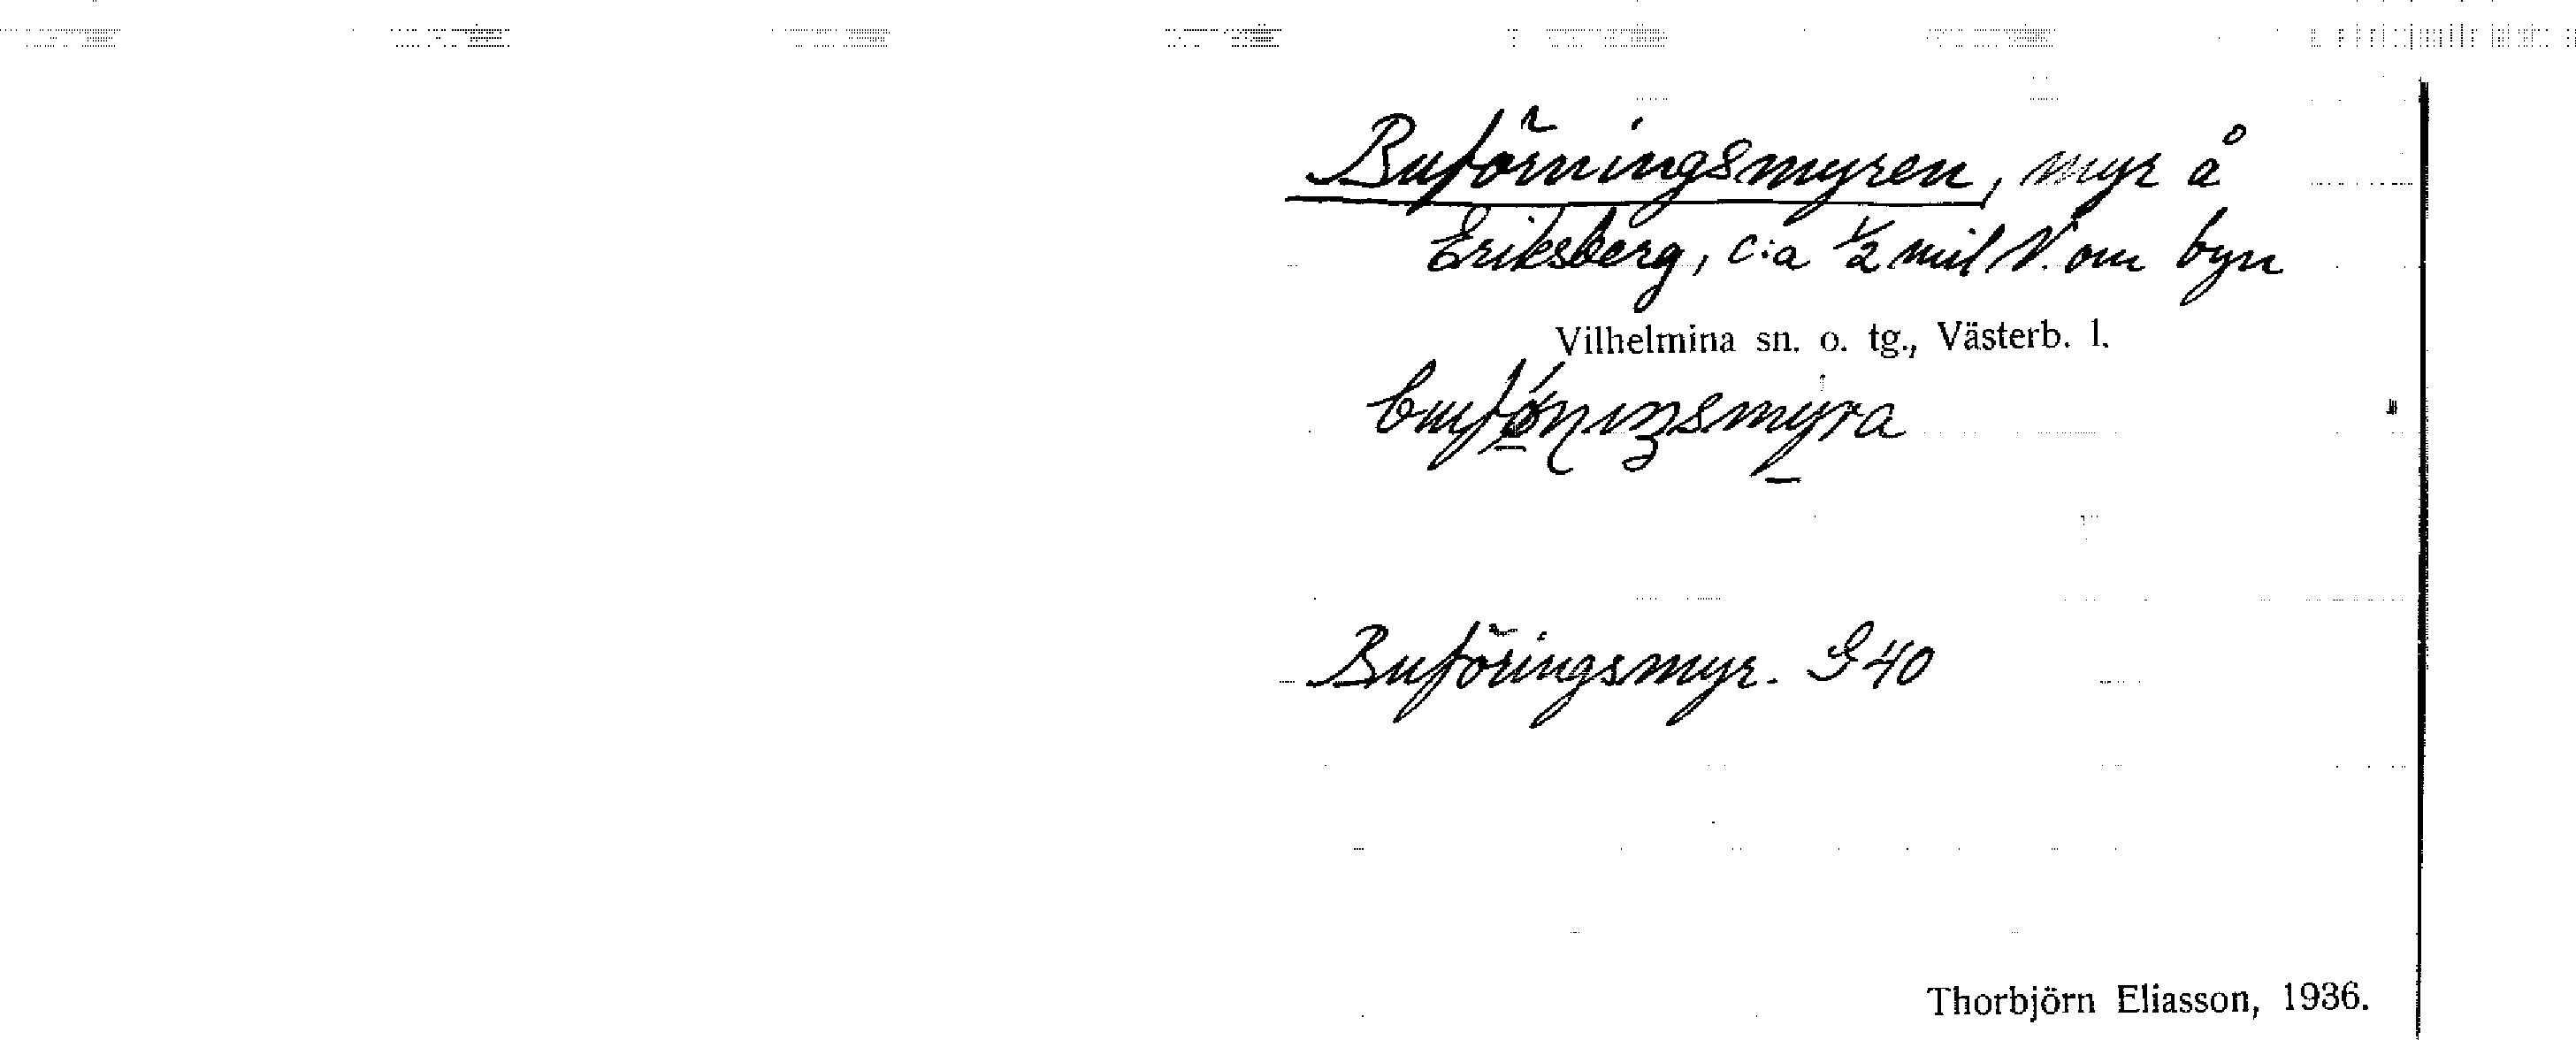 Buförningsmyren, myr å
Eriksberg, c:a ½ mil N. om byn
Vilhelmina sn. o. tg., Västerb. l.
Buföringsmyr. G40
Thorbjörn Eliasson, 1936.